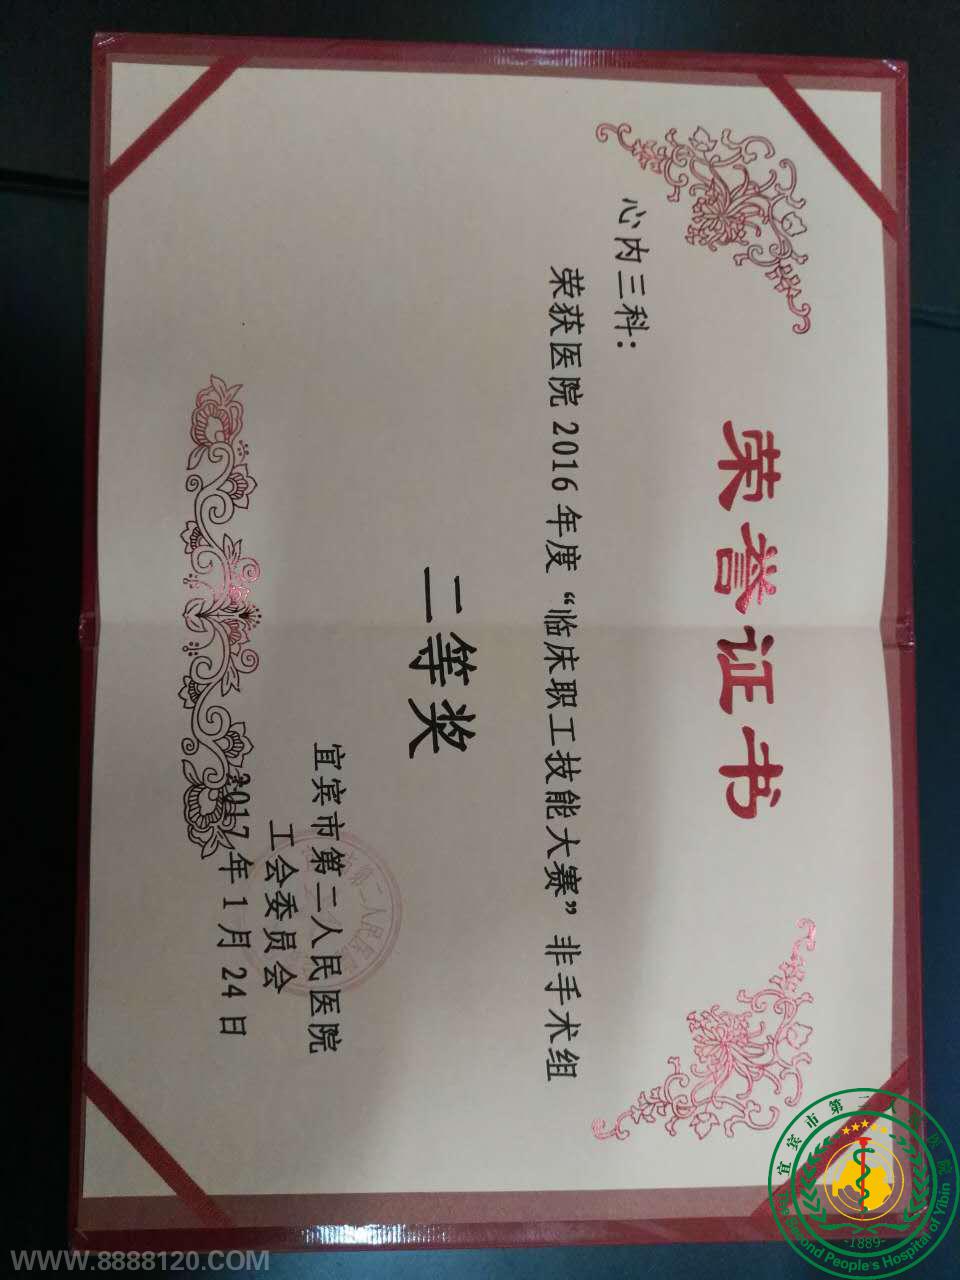 荣誉证书
心内三科：
荣获医院2016年度“临床职工技能大赛”非手术组
二等奖
宜宾市第二人民医院
工会委员会
2017年1月24日
WWW.8888120.COM
宜宾市第二人民医院
The Second People's Hospital of Yibin
-1889-